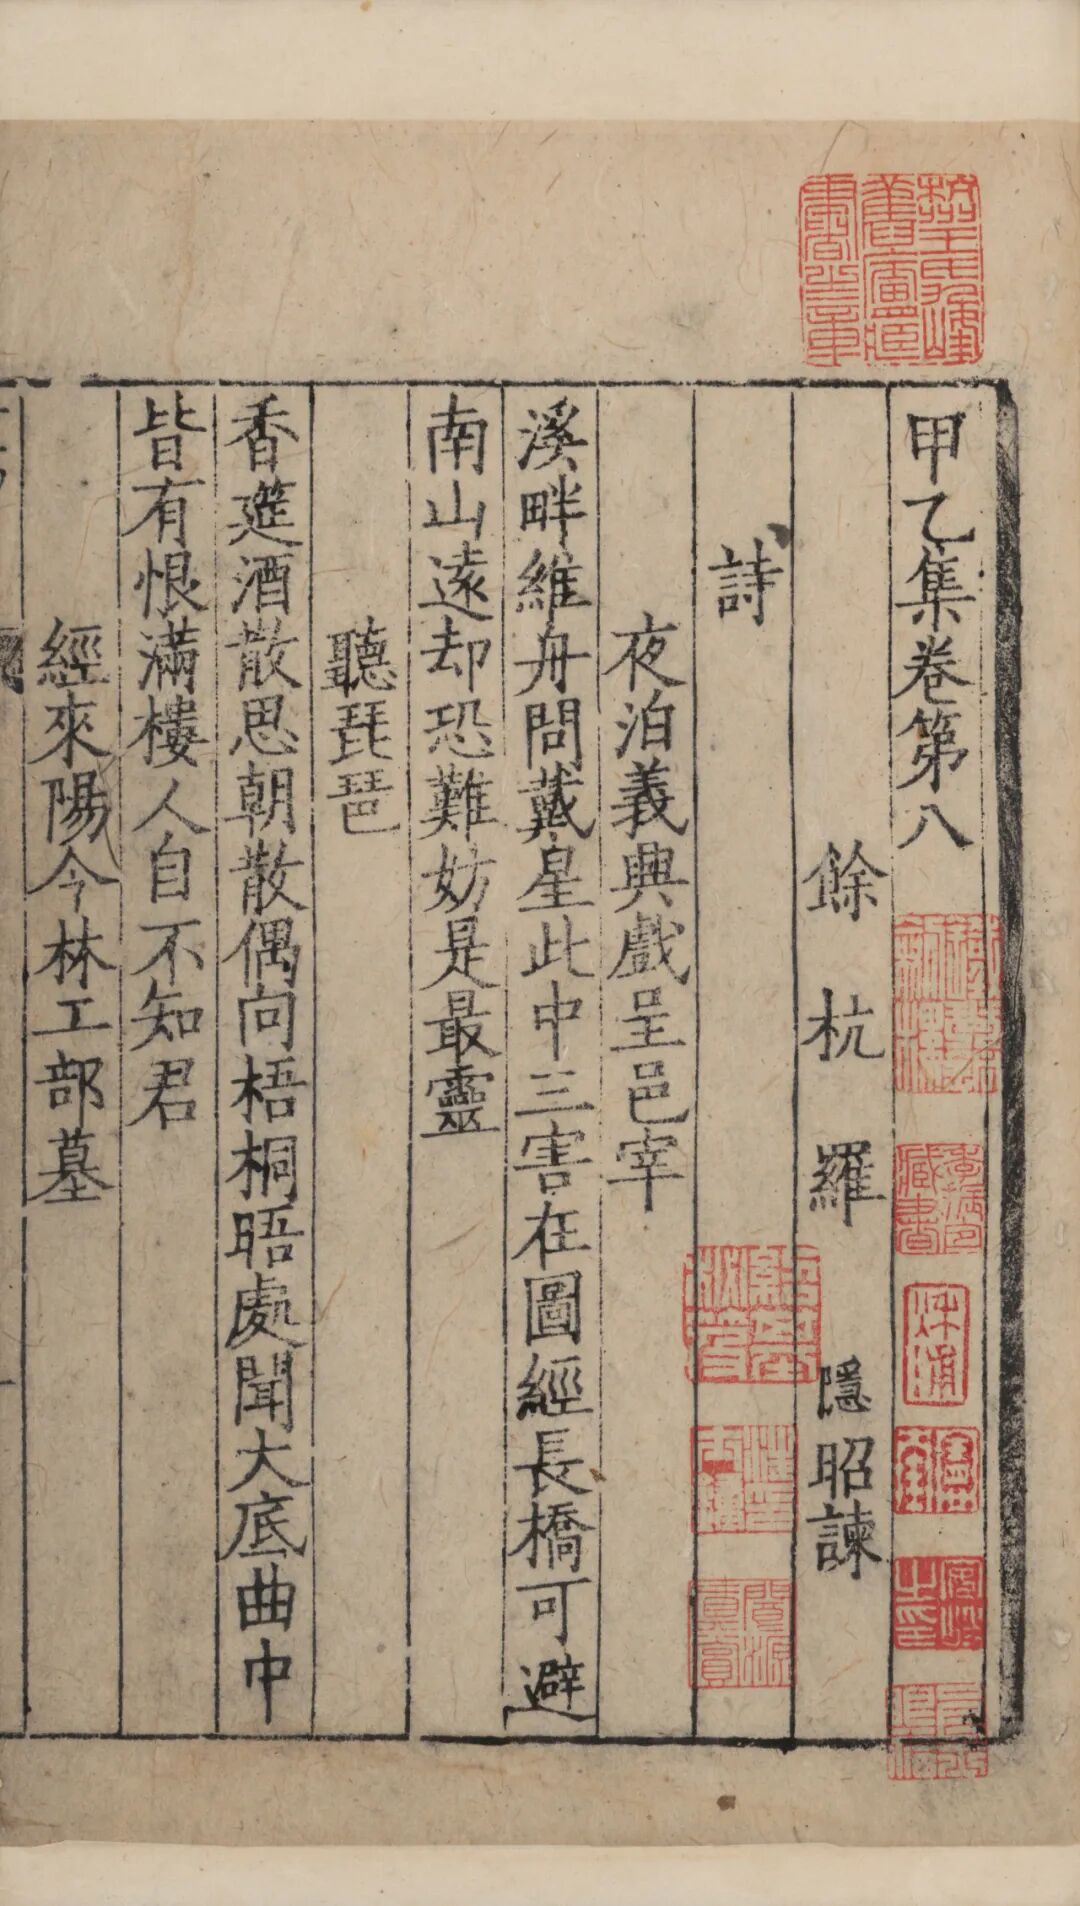 甲乙集卷第八
餘杭羅隱昭諫
詩
夜泊義興戲呈邑宰
溪畔維舟問戴星此中三害在圖經長橋可避
南山遠却恐難妨是最靈
聽琵琶
香筵酒散思朝散偶向梧桐晤處聞大底曲中
皆有恨滿樓人自不知君
經來陽今林工部墓